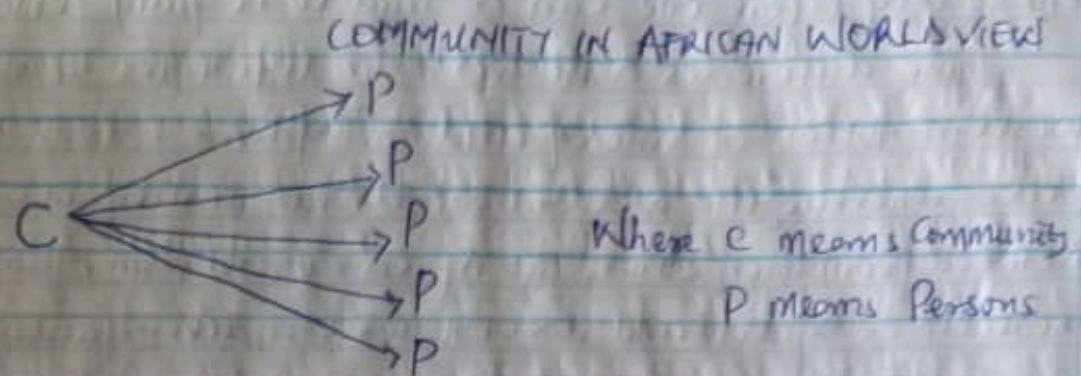 COMMUNITY IN AFRICAN WORLDVIEW
P
P
C
P
Where C means Community
P
P means Persons
P